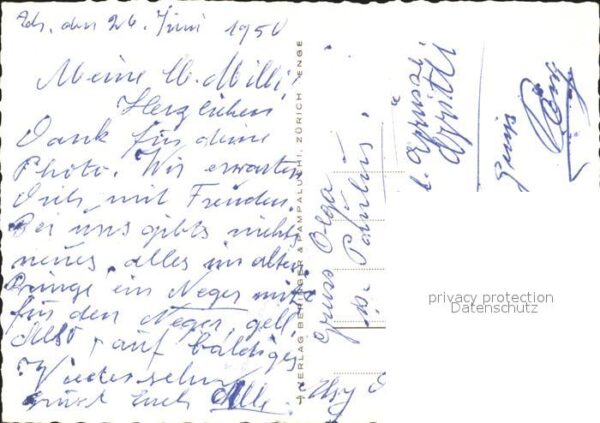 Zch. den 26. Juni 1950
Meine lb. Milli!
Herzlichen
Dank für deine
Photo. Wir erwarten
Dich mit Freuden.
Bei uns gibts nichts
neues, alles im alten.
Bringe ein Neger mit
für den Neger, gell,
Also, auf baldiges
Wiedersehn
grüsst Euch Alle
VERLAG BERINGER & PAMPALUCHI, ZÜRICH - ENGE
Gruss Olga
Paulus,
Grüsse
Gritli
Gruss
privacy protection
Datenschutz